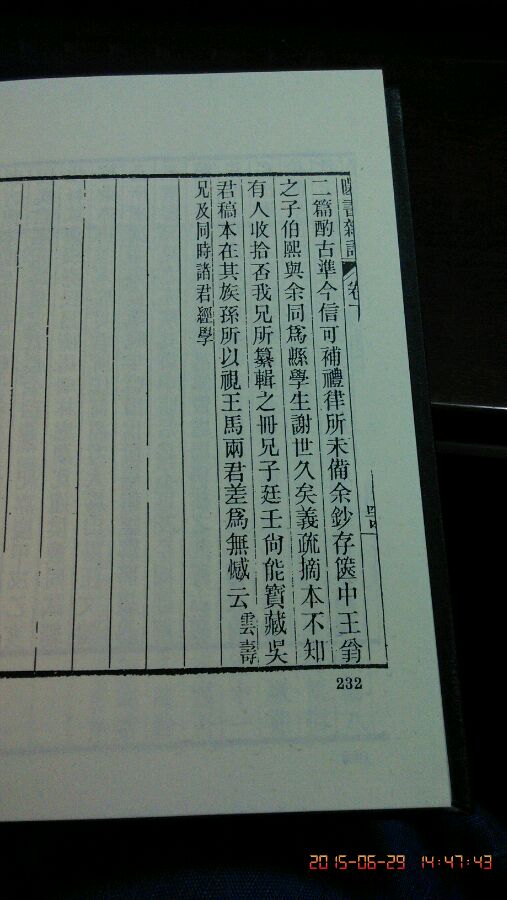 曝書雜記 卷下
四四
二篇酌古準今信可補禮律所未備余鈔存篋中王翁
之子伯熙與余同爲縣學生謝世久矣義疏摘本不知
有人收拾否我兄所纂輯之冊兄子廷王尙能寶藏吳
君稿本在其族孫所以視王馬兩君差爲無憾云雲壽
兄及同時諸君經學
232
2015-06-29 14:47:43